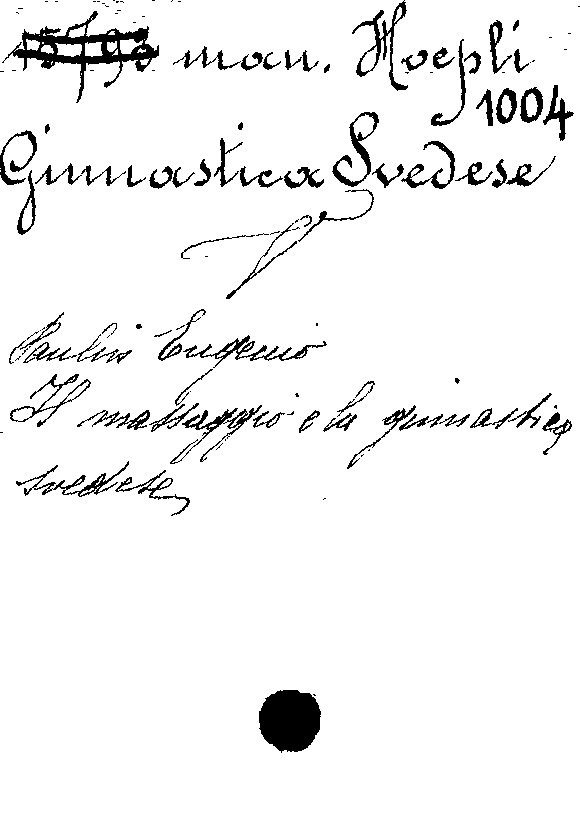 15793 man. Hoepli
1004
Ginnastica Svedese
V
Paulin Eugenio
Il massaggio e la ginnastica
svedese